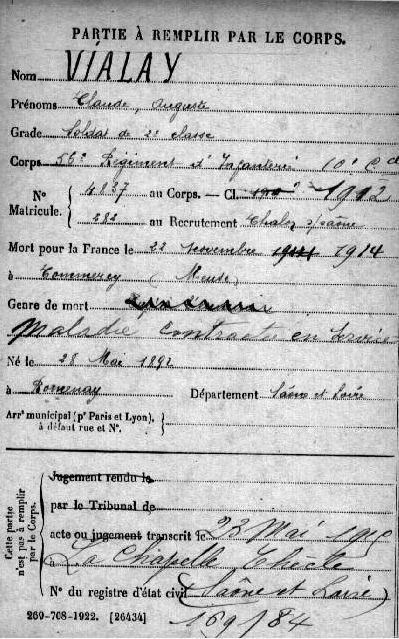 PARTIE À REMPLIR PAR LE CORPS.
Nom VIALAY
Prénoms Claude, Auguste
Grade Soldat de 2e classe
Corps 56e Régiment d'Infanterie 10e Cie
N° Matricule. { 4837 au Corps. — Cl. 1912
282 au Recrutement Chalon s/Saône
Mort pour la France le 22 novembre 1914
à Commercy (Meuse)
Genre de mort
Maladie contractée en service
Né le 28 Mai 1892
à Romenay Département Saône et Loire
Arrt municipal (pr Paris et Lyon), à défaut rue et N°. }
Cette partie n'est pas à remplir par le Corps.
Jugement rendu le
par le Tribunal de
acte ou jugement transcrit le 23 Mai 1915
à La Chapelle Thècle
N° du registre d'état civil (Saône et Loire)
169/84
269-708-1922. [26434]